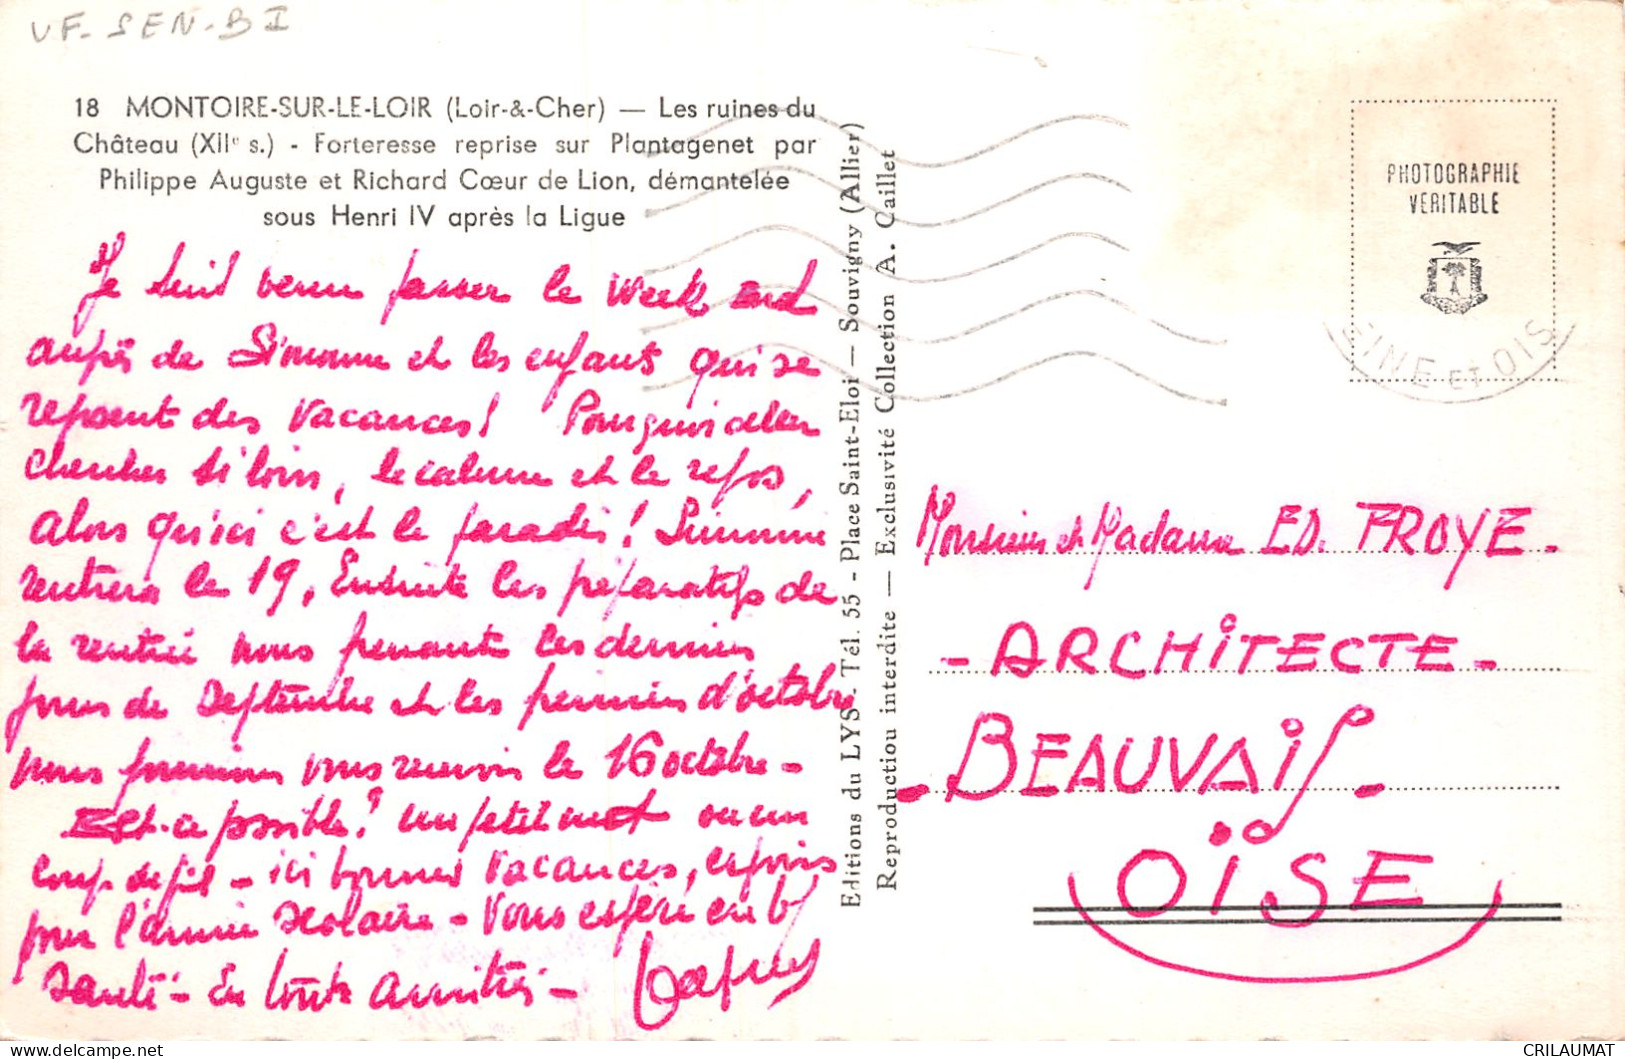 VF-SEN-BI
18 MONTOIRE-SUR-LE-LOIR (Loir-&-Cher) — Les ruines du
Château (XIIe s.) - Forteresse reprise sur Plantagenet par
Philippe Auguste et Richard Cœur de Lion, démantelée
sous Henri IV après la Ligue
Je suis venu passer le week end
auprès de Simonne et les enfants qui se
reposent des vacances! Pourquoi aller
chercher si loin, le calme et le repos,
alors qu'ici c'est le paradis! Simonne
rentrera le 19, Ensuite les préparatifs de
la rentrée nous prenant les derniers
jours de Septembre et les premiers d'octobre
nous pourrions vous recevoir le 16 octobre -
Est-ce possible? un petit mot ou un
coup de fil - ici bonnes vacances, espoirs
pour l'année scolaire - Vous espère en b
santé - En toute amitié -
Editions du LYS - Tél. 55 - Place Saint-Eloi — Souvigny (Allier)
Reproduction interdite — Exclusivité Collection A. Caillet
PHOTOGRAPHIE
VERITABLE
SEINE ET OISE
Monsieur et Madame ED. FROYE -
- ARCHITECTE -
- BEAUVAIS -
OISE
www.delcampe.net
CRILAUMAT